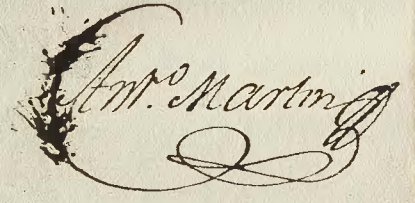 Antº. Martin